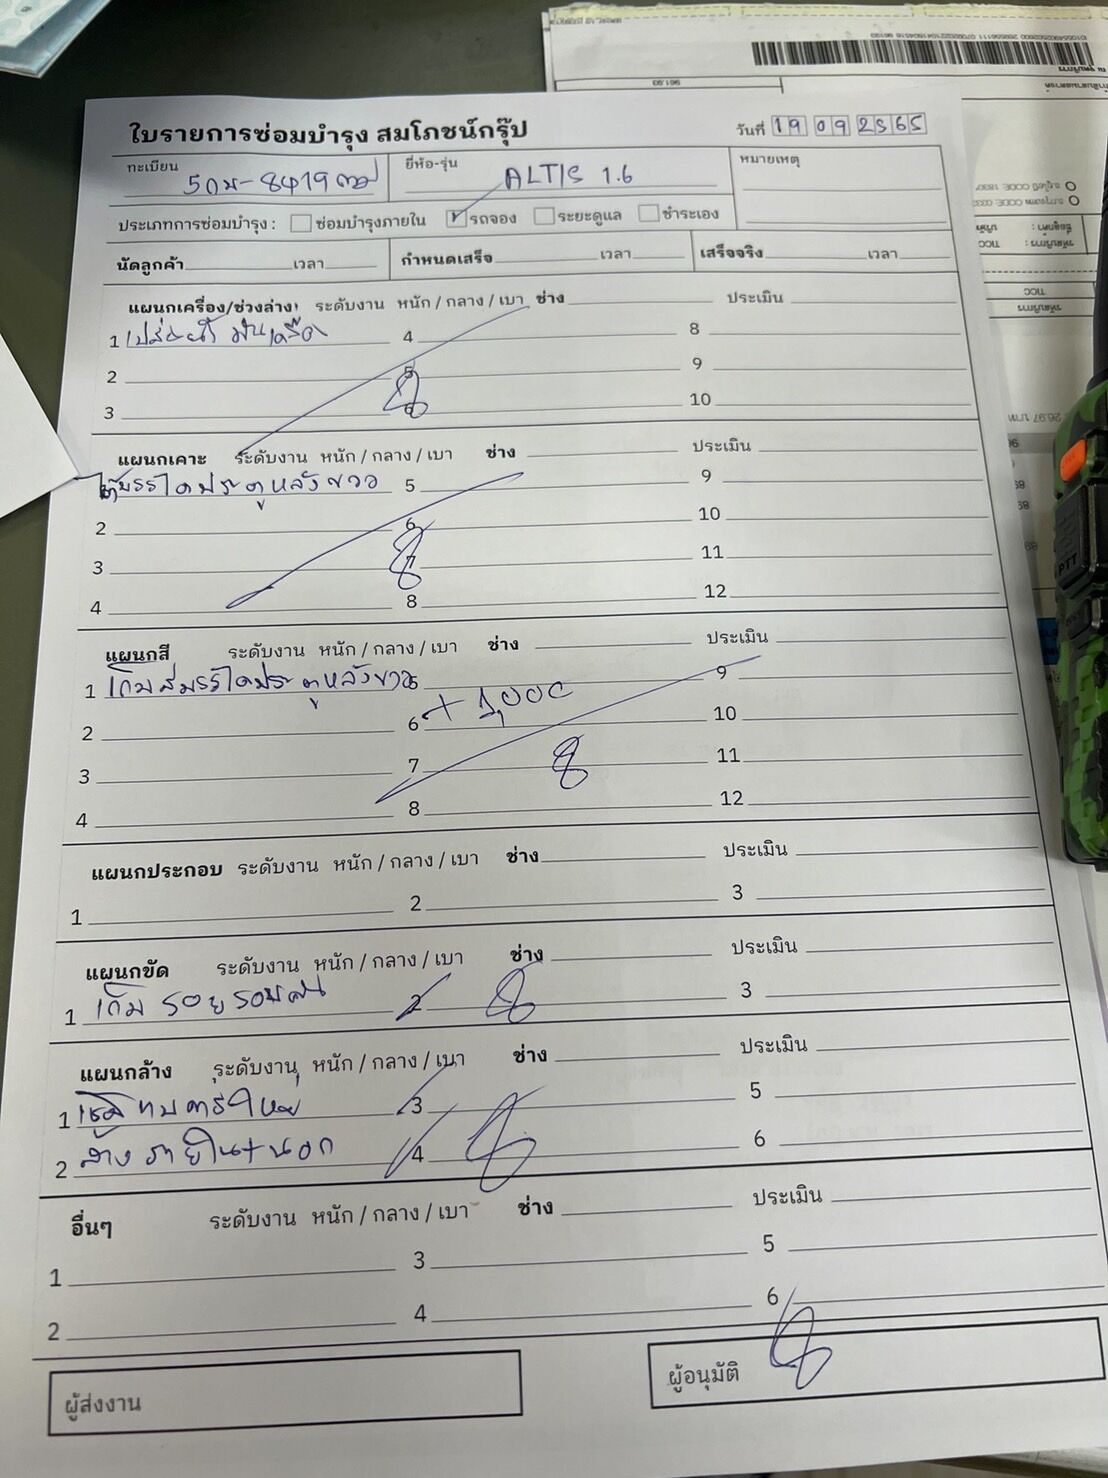 ใบรายการซ่อมบำรุง สมโภชน์กรุ๊ป
วันที่ 19 09 2565
ทะเบียน 5กม-8419 กทม
ยี่ห้อ-รุ่น ALTIS 1.6
หมายเหตุ
ประเภทการซ่อมบำรุง : ซ่อมบำรุงภายใน รถจอง ระยะดูแล ชำระเอง
นัดลูกค้า เวลา กำหนดเสร็จ เวลา เสร็จจริง เวลา
แผนกเครื่อง/ช่วงล่าง ระดับงาน หนัก / กลาง / เบา ช่าง ประเมิน
1 4 8
2 5 9
3 6 10
แผนกเคาะ ระดับงาน หนัก / กลาง / เบา ช่าง ประเมิน
บรรไดประตูหลังขวา 5 9
2 6 10
3 7 11
4 8 12
แผนกสี ระดับงาน หนัก / กลาง / เบา ช่าง ประเมิน
1 เก็บสีบรรไดประตูหลังขวา 5 9
2 6 + 1,000 10
3 7 11
4 8 12
แผนกประกอบ ระดับงาน หนัก / กลาง / เบา ช่าง ประเมิน
1 2 3
แผนกขัด ระดับงาน หนัก / กลาง / เบา ช่าง ประเมิน
1 เก็บรอยรอบคัน 2 3
แผนกล้าง ระดับงาน หนัก / กลาง / เบา ช่าง ประเมิน
1 3 5
2 ล้าง ภายใน+นอก 4 6
อื่นๆ ระดับงาน หนัก / กลาง / เบา ช่าง ประเมิน
1 3 5
2 4 6
ผู้ส่งงาน
ผู้อนุมัติ
PTT